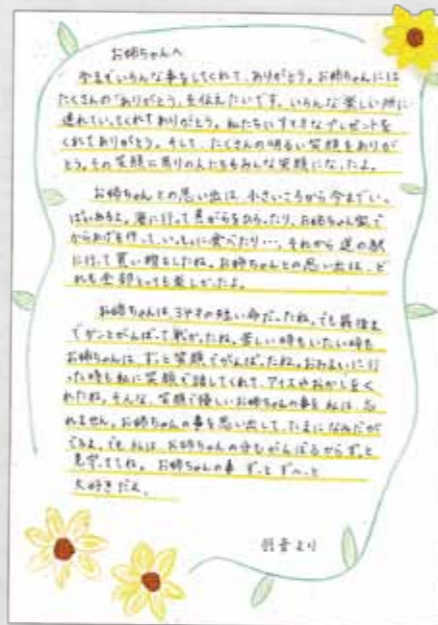 お姉ちゃんへ
今までいろんな事をしてくれて、ありがとう。お姉ちゃんには
たくさんの「ありがとう」を伝えたいです。いろんな楽しい所に
連れていってくれてありがとう。私たちにすてきなプレゼントを
くれてありがとう。そして、たくさんの明るい笑顔をありが
とう。その笑顔に周りの人たちもみんな笑顔になったよ。
お姉ちゃんとの思い出は、小さいころから今までいっ
ぱいあるよ。海に行って貝がらをひろったり、お姉ちゃん家で
からあげを作って、いっしょに食べたり…。それから道の駅
に行って買い物をしたね。お姉ちゃんとの思い出は、ど
れも全部とっても楽しかったよ。
お姉ちゃんは、34才の短い命だったね。でも最後ま
でがんばって戦かったね。苦しい時もいたい時も
お姉ちゃんは、ずっと笑顔でがんばったね。おみまいに行
った時も私に笑顔で話してくれて、アイスやおかしをく
れたね。そんな、笑顔で優しいお姉ちゃんの事を私は、忘
れません。お姉ちゃんの事を思い出して、たまになみだが
でるよ。でも私は、お姉ちゃんの分もがんばるからずっと
見守っててね。お姉ちゃんの事ずっとずーっと
大好きだよ。
より